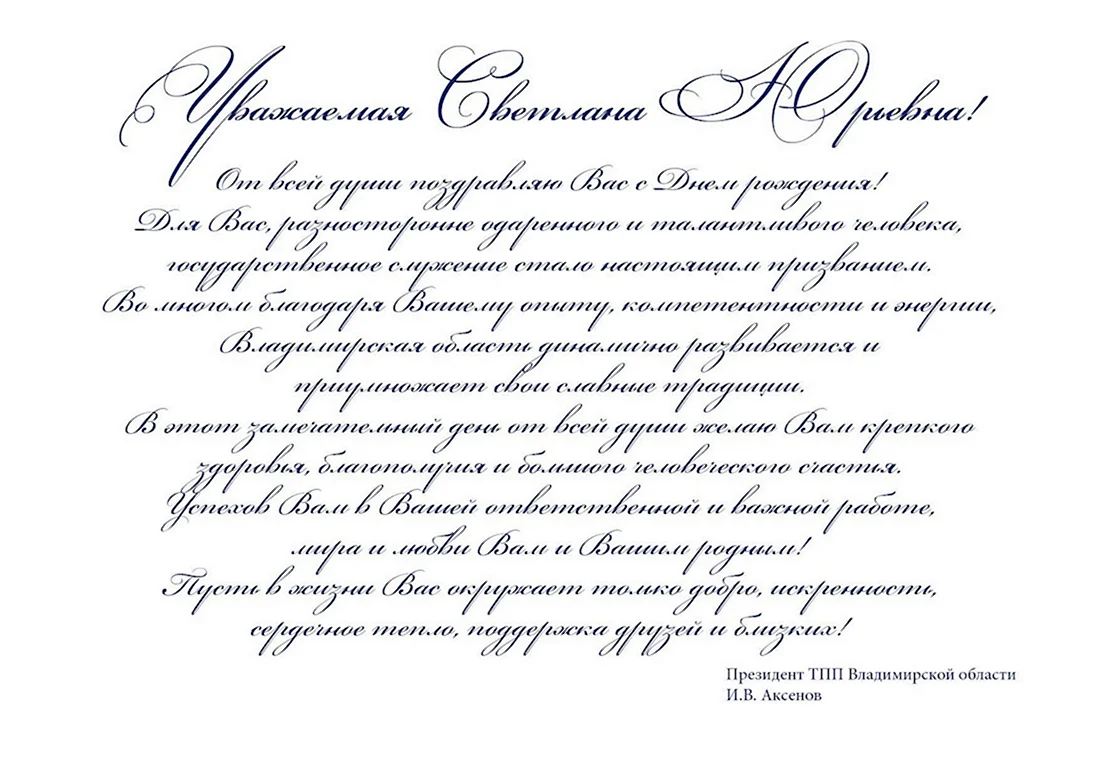 Уважаемая Светлана Юрьевна!
От всей души поздравляю Вас с Днем рождения!
Для Вас, разносторонне одаренного и талантливого человека,
государственное служение стало настоящим призванием.
Во многом благодаря Вашему опыту, компетентности и энергии,
Владимирская область динамично развивается и
приумножает свои славные традиции.
В этот замечательный день от всей души желаю Вам крепкого
здоровья, благополучия и большого человеческого счастья.
Успехов Вам в Вашей ответственной и важной работе,
мира и любви Вам и Вашим родным!
Пусть в жизни Вас окружает только добро, искренность,
сердечное тепло, поддержка друзей и близких!
Президент ТПП Владимирской области
И.В. Аксенов